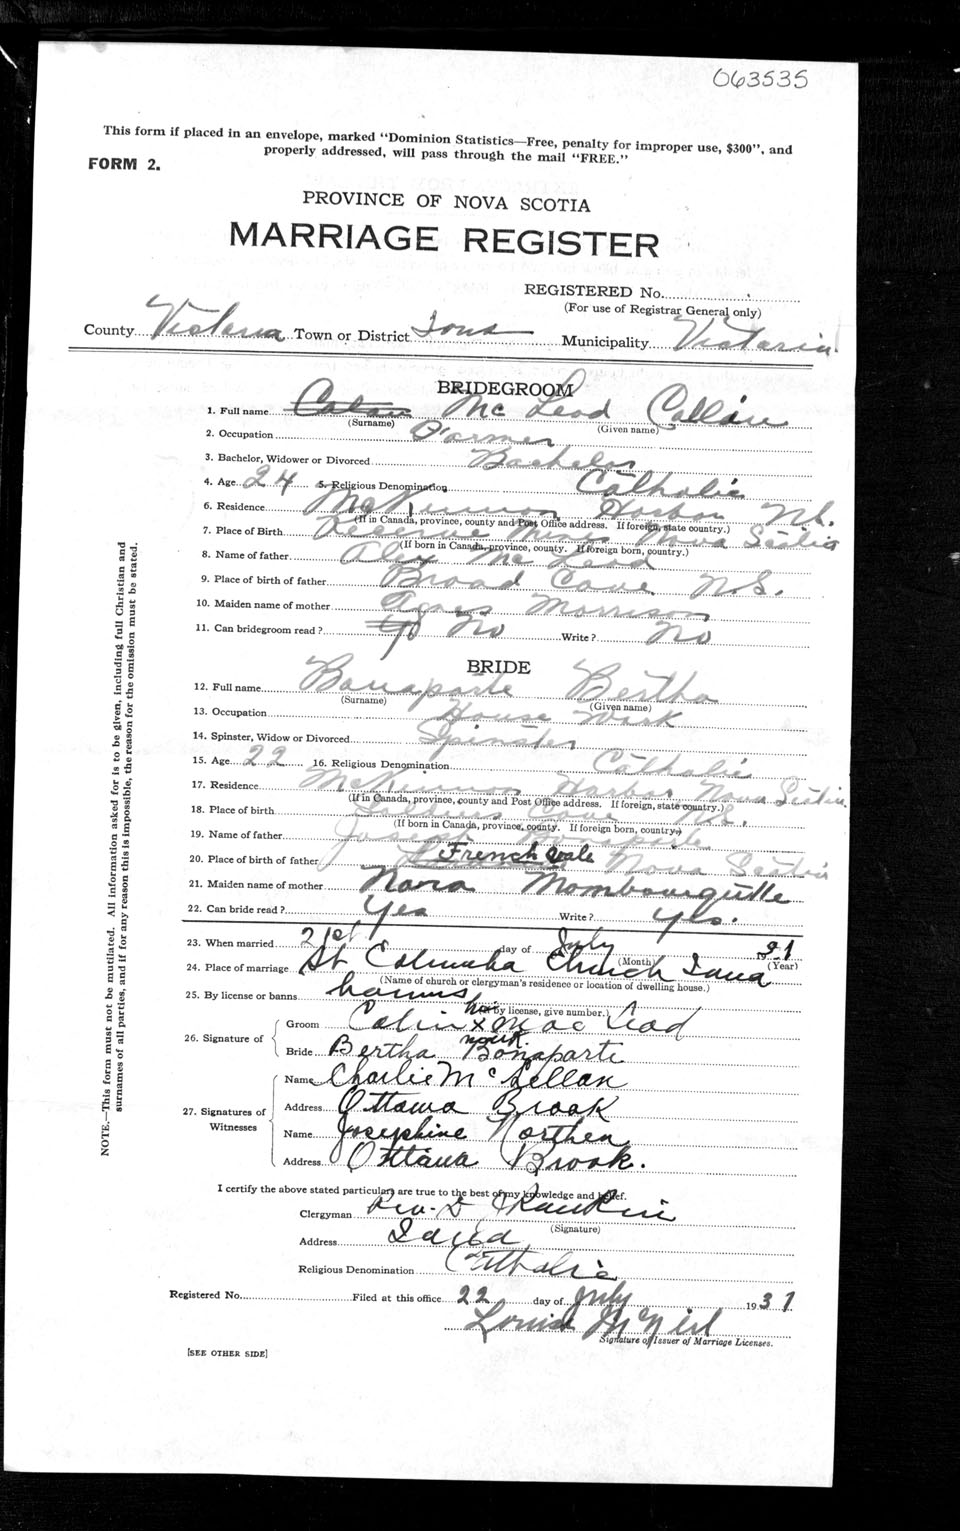 063535
This form if placed in an envelope, marked "Dominion Statistics—Free, penalty for improper use, $300", and
properly addressed, will pass through the mail "FREE."
FORM 2.
PROVINCE OF NOVA SCOTIA
MARRIAGE REGISTER
REGISTERED No.
(For use of Registrar General only)
County Victoria Town or District Iona Municipality Victoria
BRIDEGROOM
1. Full name Mc Leod Collin
(Surname) (Given name)
2. Occupation Farmer
3. Bachelor, Widower or Divorced Bachelor
4. Age 24 5. Religious Denomination Catholic
6. Residence McKinnon Harbor N.S.
(If in Canada, province, county and Post Office address. If foreign, state country.)
7. Place of Birth Mines Nova Scotia
(If born in Canada, province, county. If foreign born, country.)
8. Name of father Alex Mc Leod
9. Place of birth of father Broad Cove N.S.
10. Maiden name of mother Agnes Morrison
11. Can bridegroom read? No Write? No
BRIDE
12. Full name Bonaparte Bertha
(Surname) (Given name)
13. Occupation House Work
14. Spinster, Widow or Divorced Spinster
15. Age 22 16. Religious Denomination Catholic
17. Residence McKinnon Harbor Nova Scotia
(If in Canada, province, county and Post Office address. If foreign, state country.)
18. Place of birth Cove N.S.
(If born in Canada, province, county. If foreign born, country.)
19. Name of father Joseph Bonaparte
20. Place of birth of father French Vale Nova Scotia
21. Maiden name of mother Nora Mombourquette
22. Can bride read? Yes Write? Yes.
23. When married 21st day of July 1931
(Month) (Year)
24. Place of marriage St Columba Church Iona
(Name of church or clergyman's residence or location of dwelling house.)
25. By license or banns banns
(If by license, give number.)
his
26. Signature of Groom Colin x Mac Leod
mark.
Bride Bertha Bonaparte
27. Signatures of Witnesses Name Charlie McLellan
Address Ottawa Brook
Name Josephine Northen
Address Ottawa Brook.
I certify the above stated particulars are true to the best of my knowledge and belief.
Clergyman Rev. D Rankin
(Signature)
Address Iona
Religious Denomination Catholic
Registered No. Filed at this office 22 day of July 1931
Louise McNeil
Signature of Issuer of Marriage Licenses.
[SEE OTHER SIDE]
NOTE.—This form must not be mutilated. All information asked for is to be given, including full Christian and
surnames of all parties, and if for any reason this is impossible, the reason for the omission must be stated.